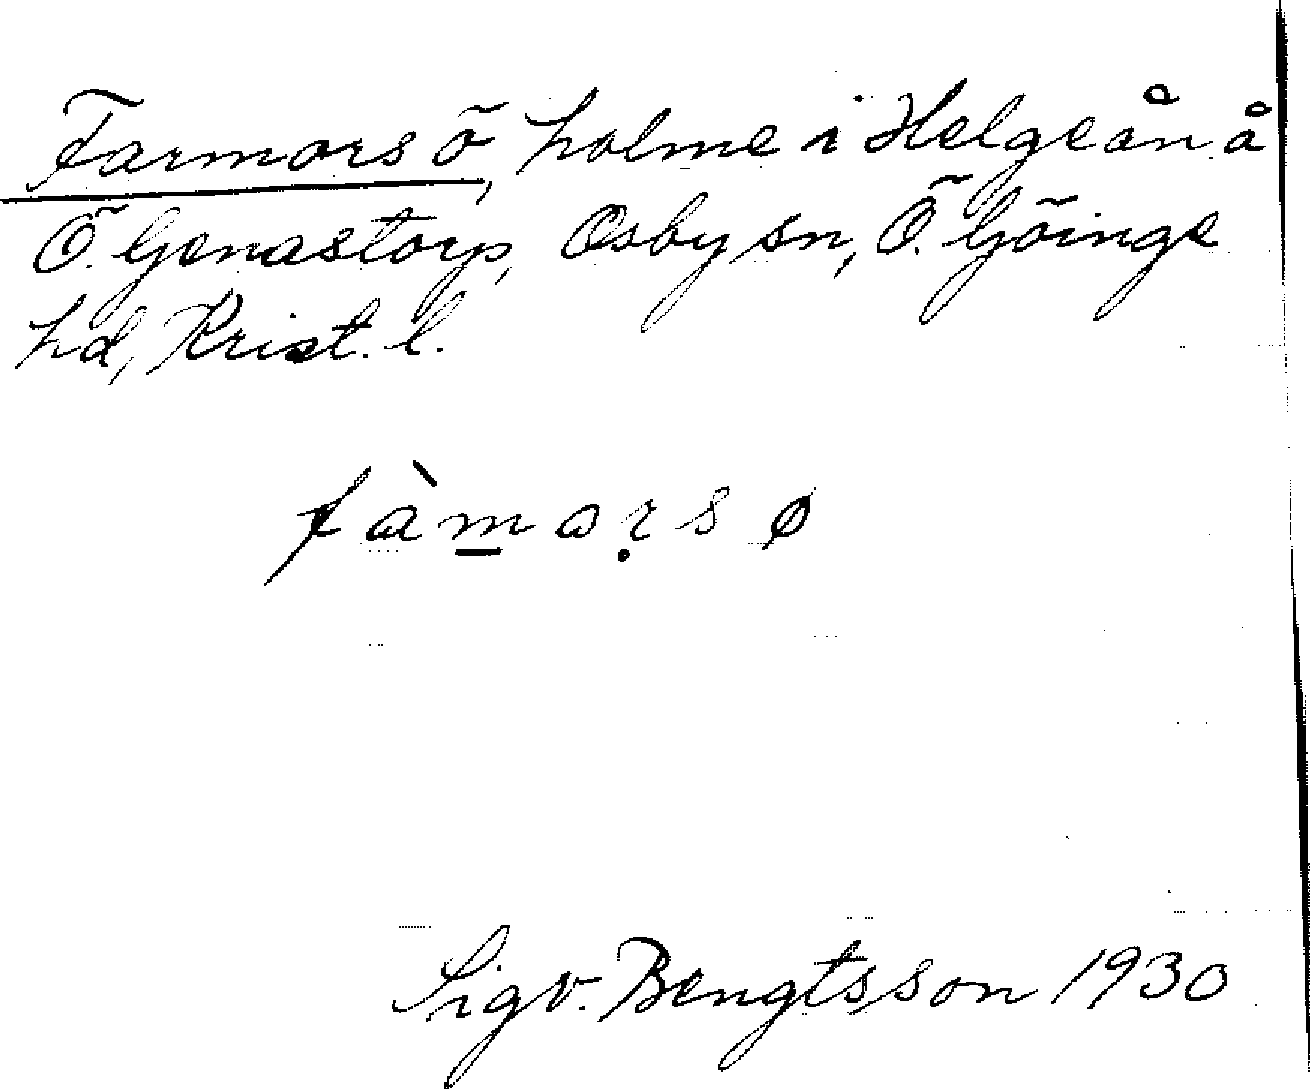 Farmors ö, holme i Helgeån å
Ö. Genastorp, Osby sn, Ö. Göinge
hd, Krist. l.
fàmọrs ø
Sigv. Bengtsson 1930